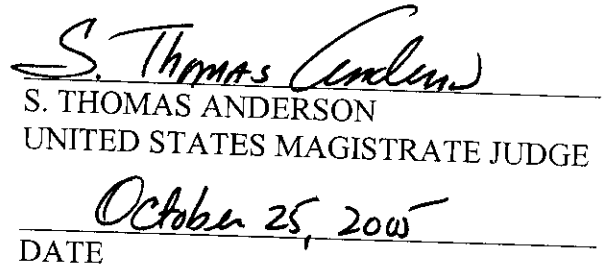 S. Thomas Anderson
S. THOMAS ANDERSON
UNITED STATES MAGISTRATE JUDGE
October 25, 2005
DATE